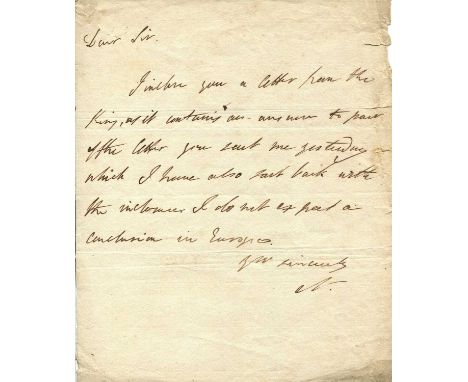 Dear Sir.
I inclose you a letter from the
King, as it contains an answer to part
of the letter you sent me yesterday
which I have also sent back with
the inclosures I do not expect a
conclusion in Europe.
Yrs sincerely